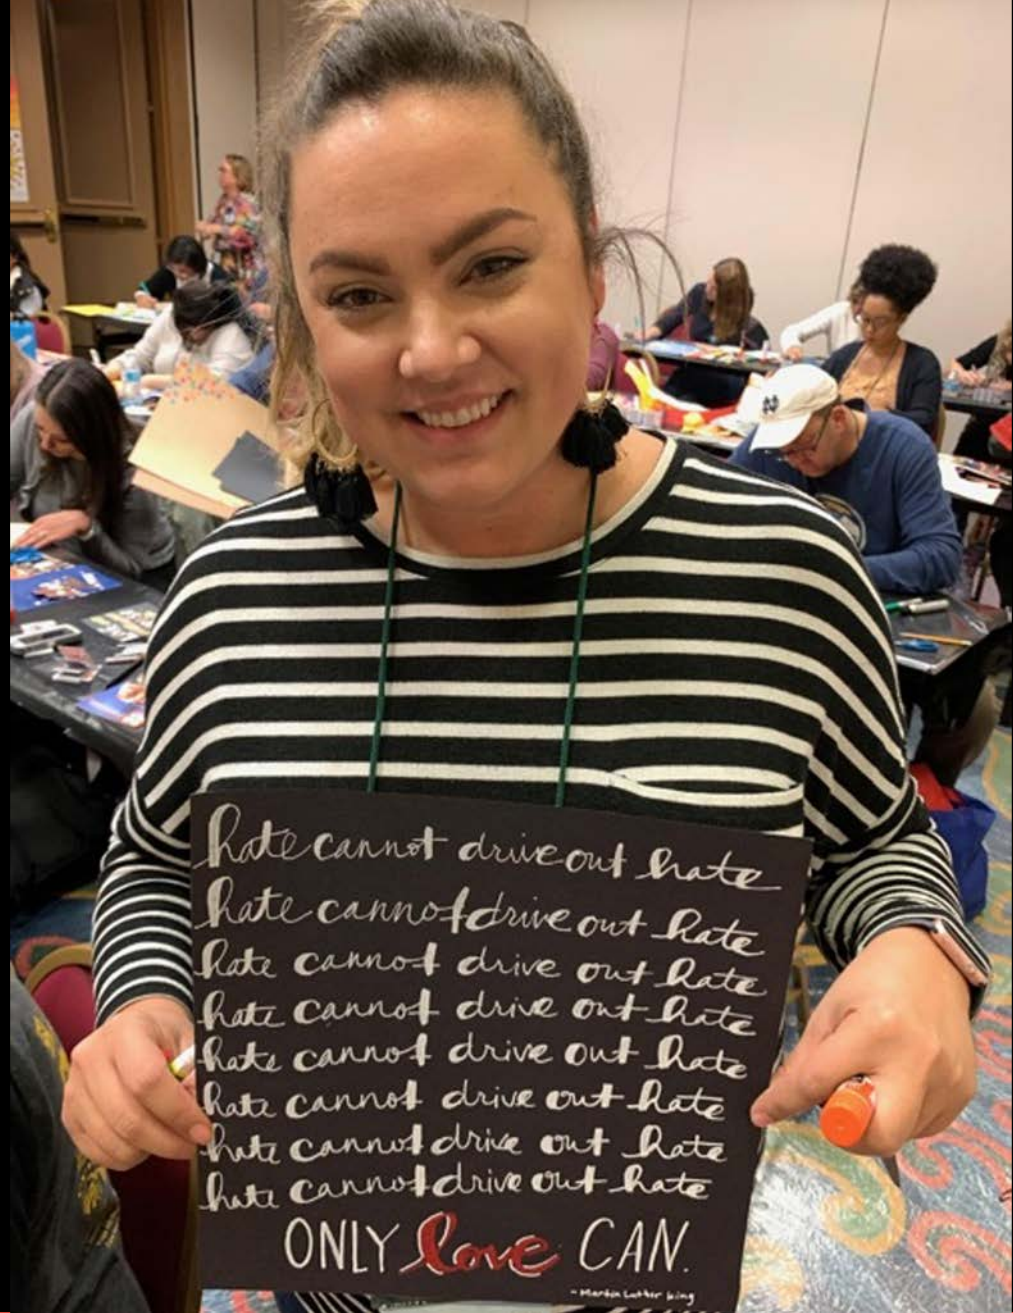 hate cannot drive out hate
hate cannot drive out hate
hate cannot drive out hate
hate cannot drive out hate
hate cannot drive out hate
hate cannot drive out hate
hate cannot drive out hate
hate cannot drive out hate
ONLY love CAN.
- Martin Luther King